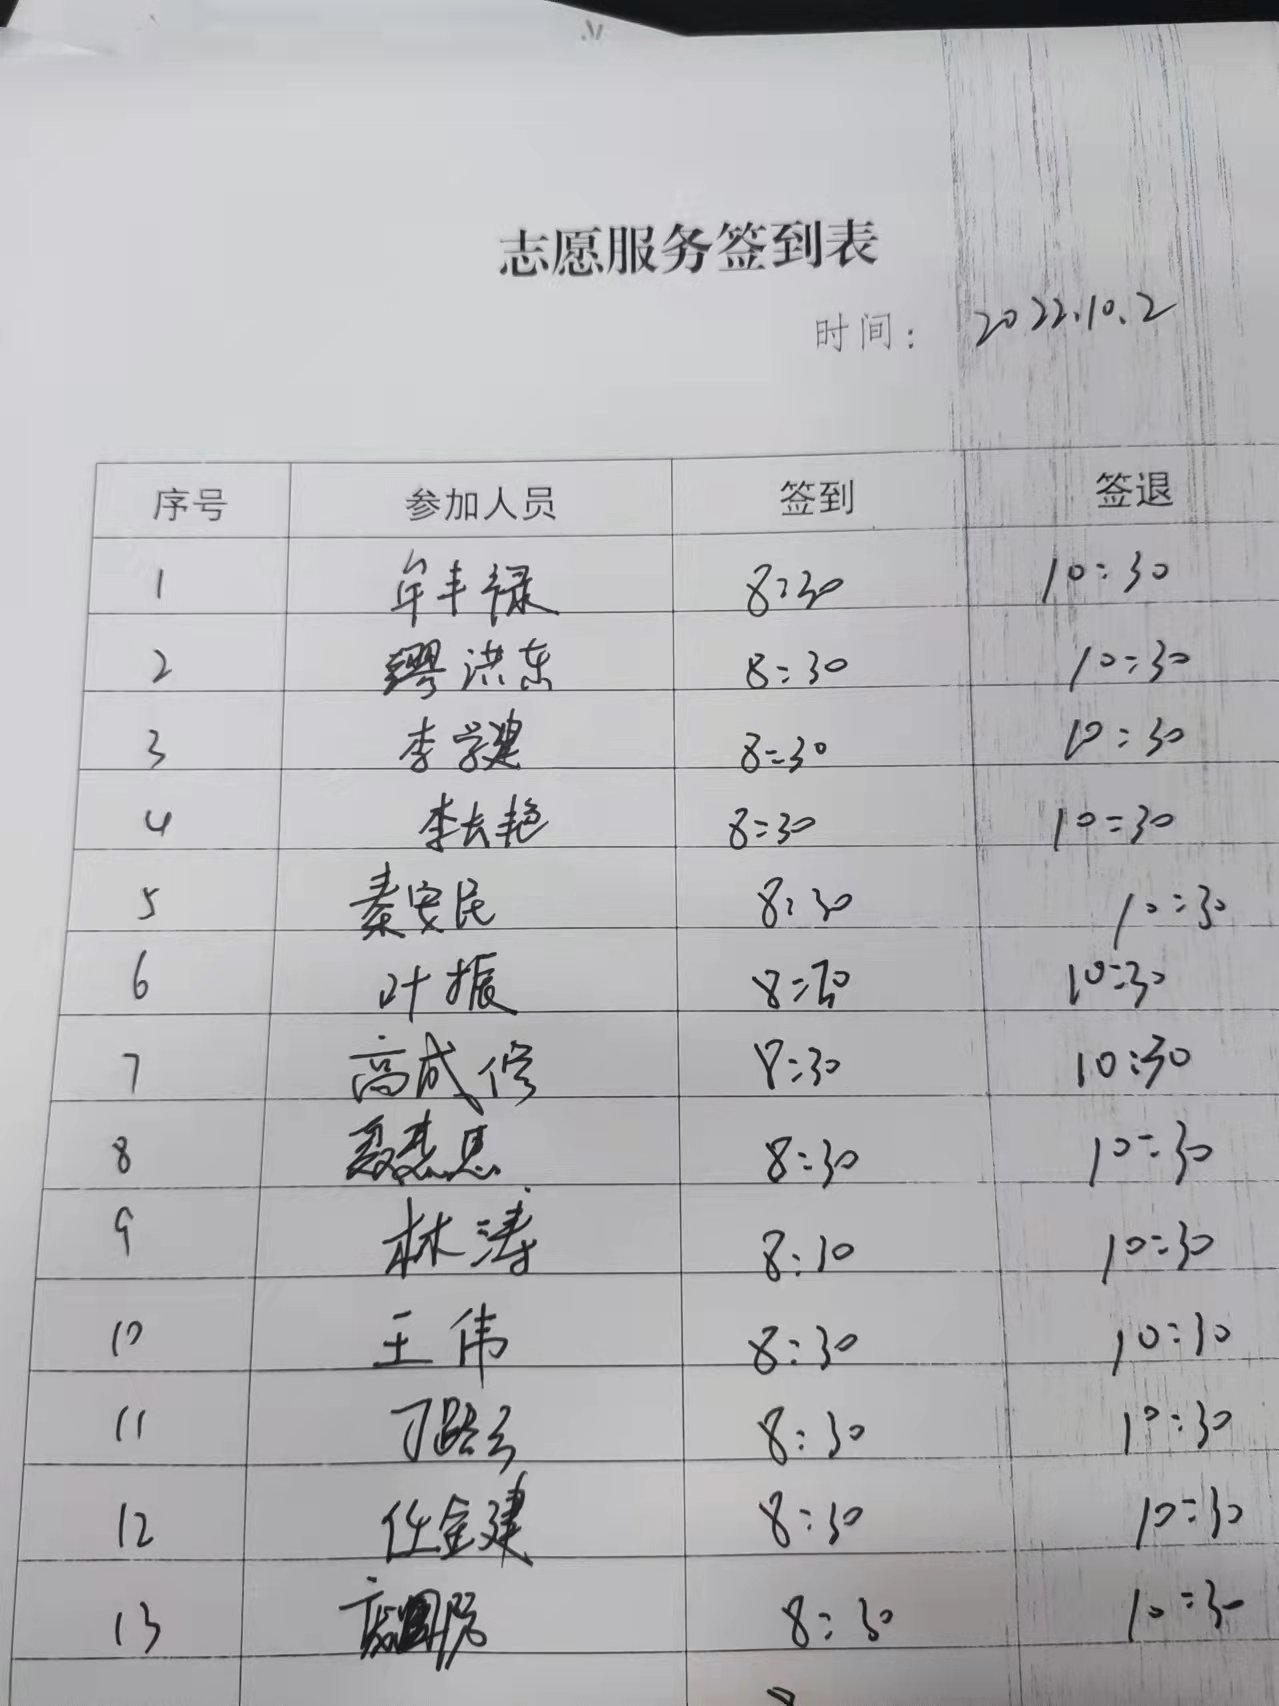 志愿服务签到表
时间: 2022.10.2
序号 参加人员 签到 签退
1 牟丰禄 8:30 10:30
2 缪洪东 8:30 10:30
3 李学建 8:30 10:30
4 李长艳 8:30 10:30
5 秦安民 8:30 10:30
6 叶振 8:30 10:30
7 高成修 8:30 10:30
8 8:30 10:30
9 林涛 8:30 10:30
10 王伟 8:30 10:30
11 刁 8:30 10:30
12 任金建 8:30 10:30
13 8:30 10:30